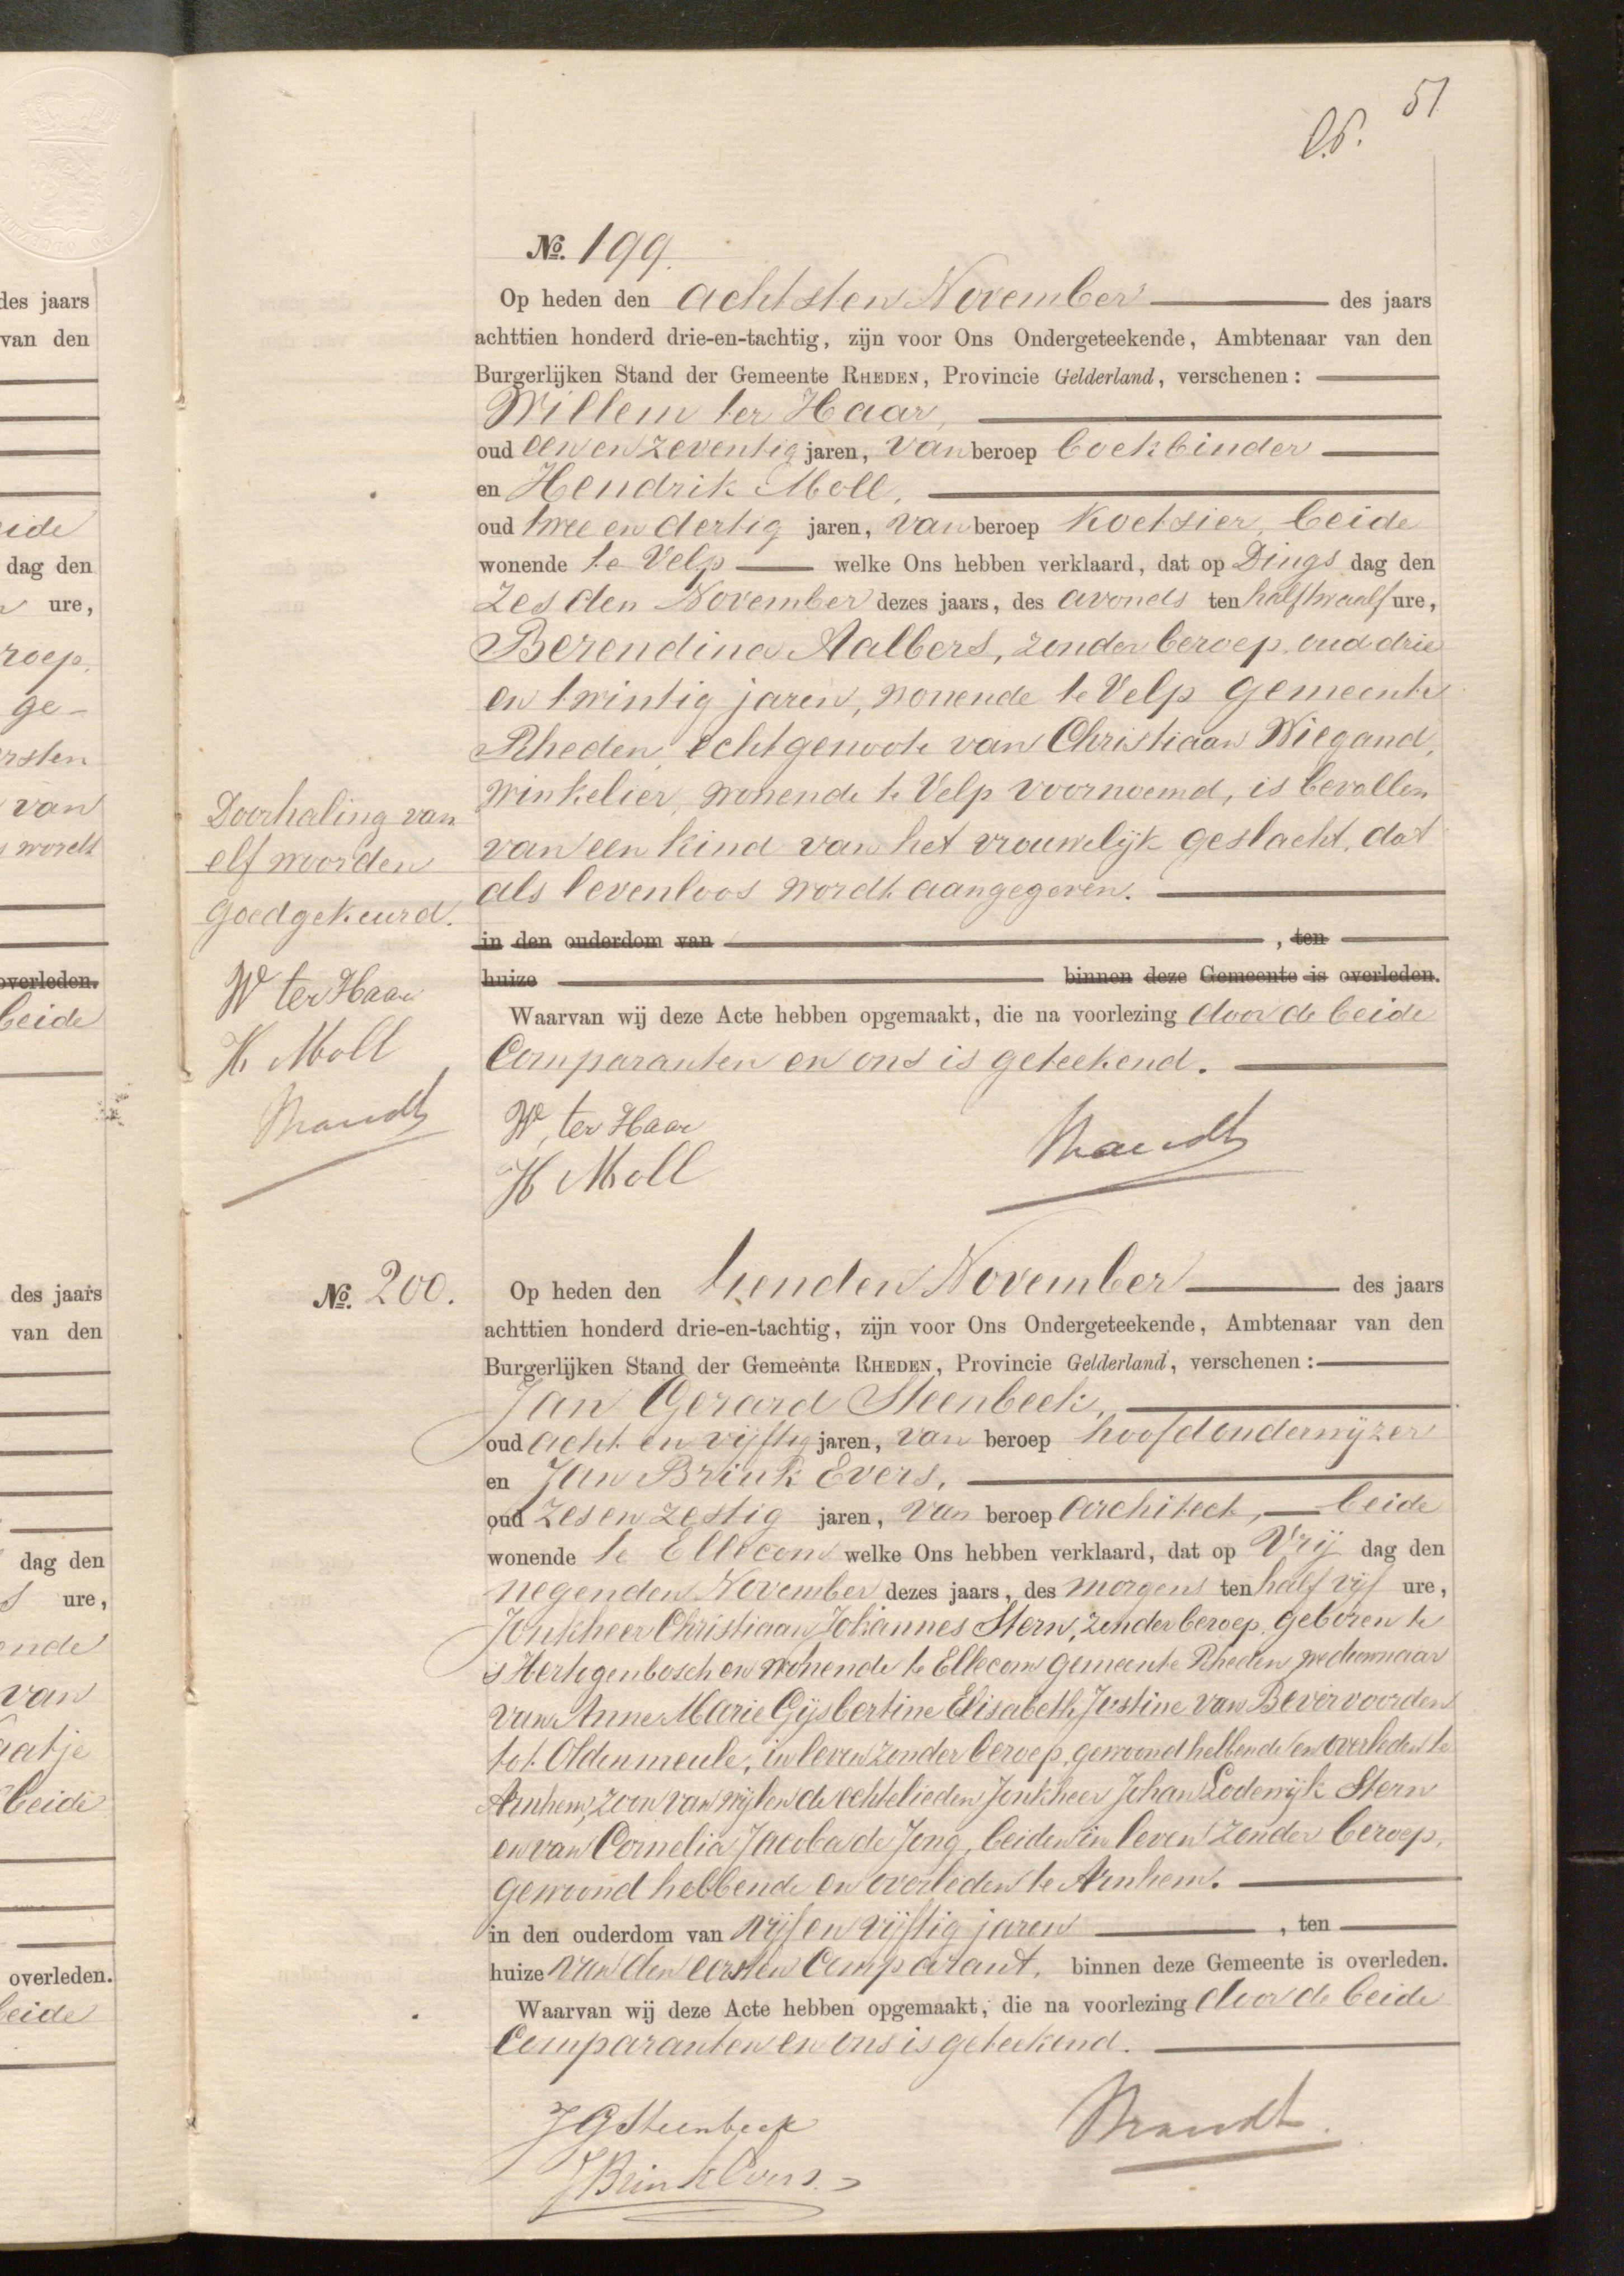 51
№. 199.
Op heden den achtsten November des jaars
achttien honderd drie-en-tachtig, zijn voor Ons Ondergeteekende, Ambtenaar van den
Burgerlijken Stand der Gemeente RHEDEN, Provincie Gelderland, verschenen:
Willem ter Haar,
oud een en zeventig jaren, van beroep boekbinder
en Hendrik Moll,
oud twee en dertig jaren, van beroep koetsier, beide
wonende te Velp welke Ons hebben verklaard, dat op Dings dag den
zesden November dezes jaars, des avonds ten half twaalf ure,
Berendina Aalbers, zonder beroep, oud drie
en twintig jaren, wonende te Velp gemeente
Rheden, echtgenoote van Christiaan Wiegand,
winkelier, wonende te Velp voornoemd, is bevallen
van een kind van het vrouwelijk geslacht, dat
als levenloos wordt aangegeven.
in den ouderdom van , ten
huize binnen deze Gemeente is overleden.
Waarvan wij deze Acte hebben opgemaakt, die na voorlezing door de beide
Comparanten en ons is geteekend.
W. ter Haar
H Moll
Brandt
Doorhaling van
elf woorden
goedgekeurd.
W ter Haar
H. Moll
Brandt
№. 200.
Op heden den tienden November des jaars
achttien honderd drie-en-tachtig, zijn voor Ons Ondergeteekende, Ambtenaar van den
Burgerlijken Stand der Gemeente RHEDEN, Provincie Gelderland, verschenen:
Jan Gerard Steenbeek,
oud acht en vijftig jaren, van beroep hoofdonderwijzer
en Jan Brink Evers,
oud zes en zestig jaren, van beroep architect, beide
wonende te Ellecom welke Ons hebben verklaard, dat op Vrij dag den
negenden November dezes jaars, des morgens ten half vijf ure,
Jonkheer Christiaan Johannes Stern, zonder beroep, geboren te
's Hertogenbosch en wonende te Ellecom gemeente Rheden weduwnaar
van Anne Marie Gijsbertine Elisabeth Justine van Bevervoorden
tot Oldenmeule, in leven zonder beroep, gewoond hebbende en overleden te
Arnhem, zoon van wijlen de echtelieden Jonkheer Johan Lodewijk Stern
en van Cornelia Jacoba de Jong, beiden in leven zonder beroep,
gewoond hebbende en overleden te Arnhem.
in den ouderdom van vijf en vijftig jaren , ten
huize van den eersten Comparant, binnen deze Gemeente is overleden.
Waarvan wij deze Acte hebben opgemaakt, die na voorlezing door de beide
Comparanten en ons is geteekend.
J G Steenbeek
J Brink Evers
Brandt